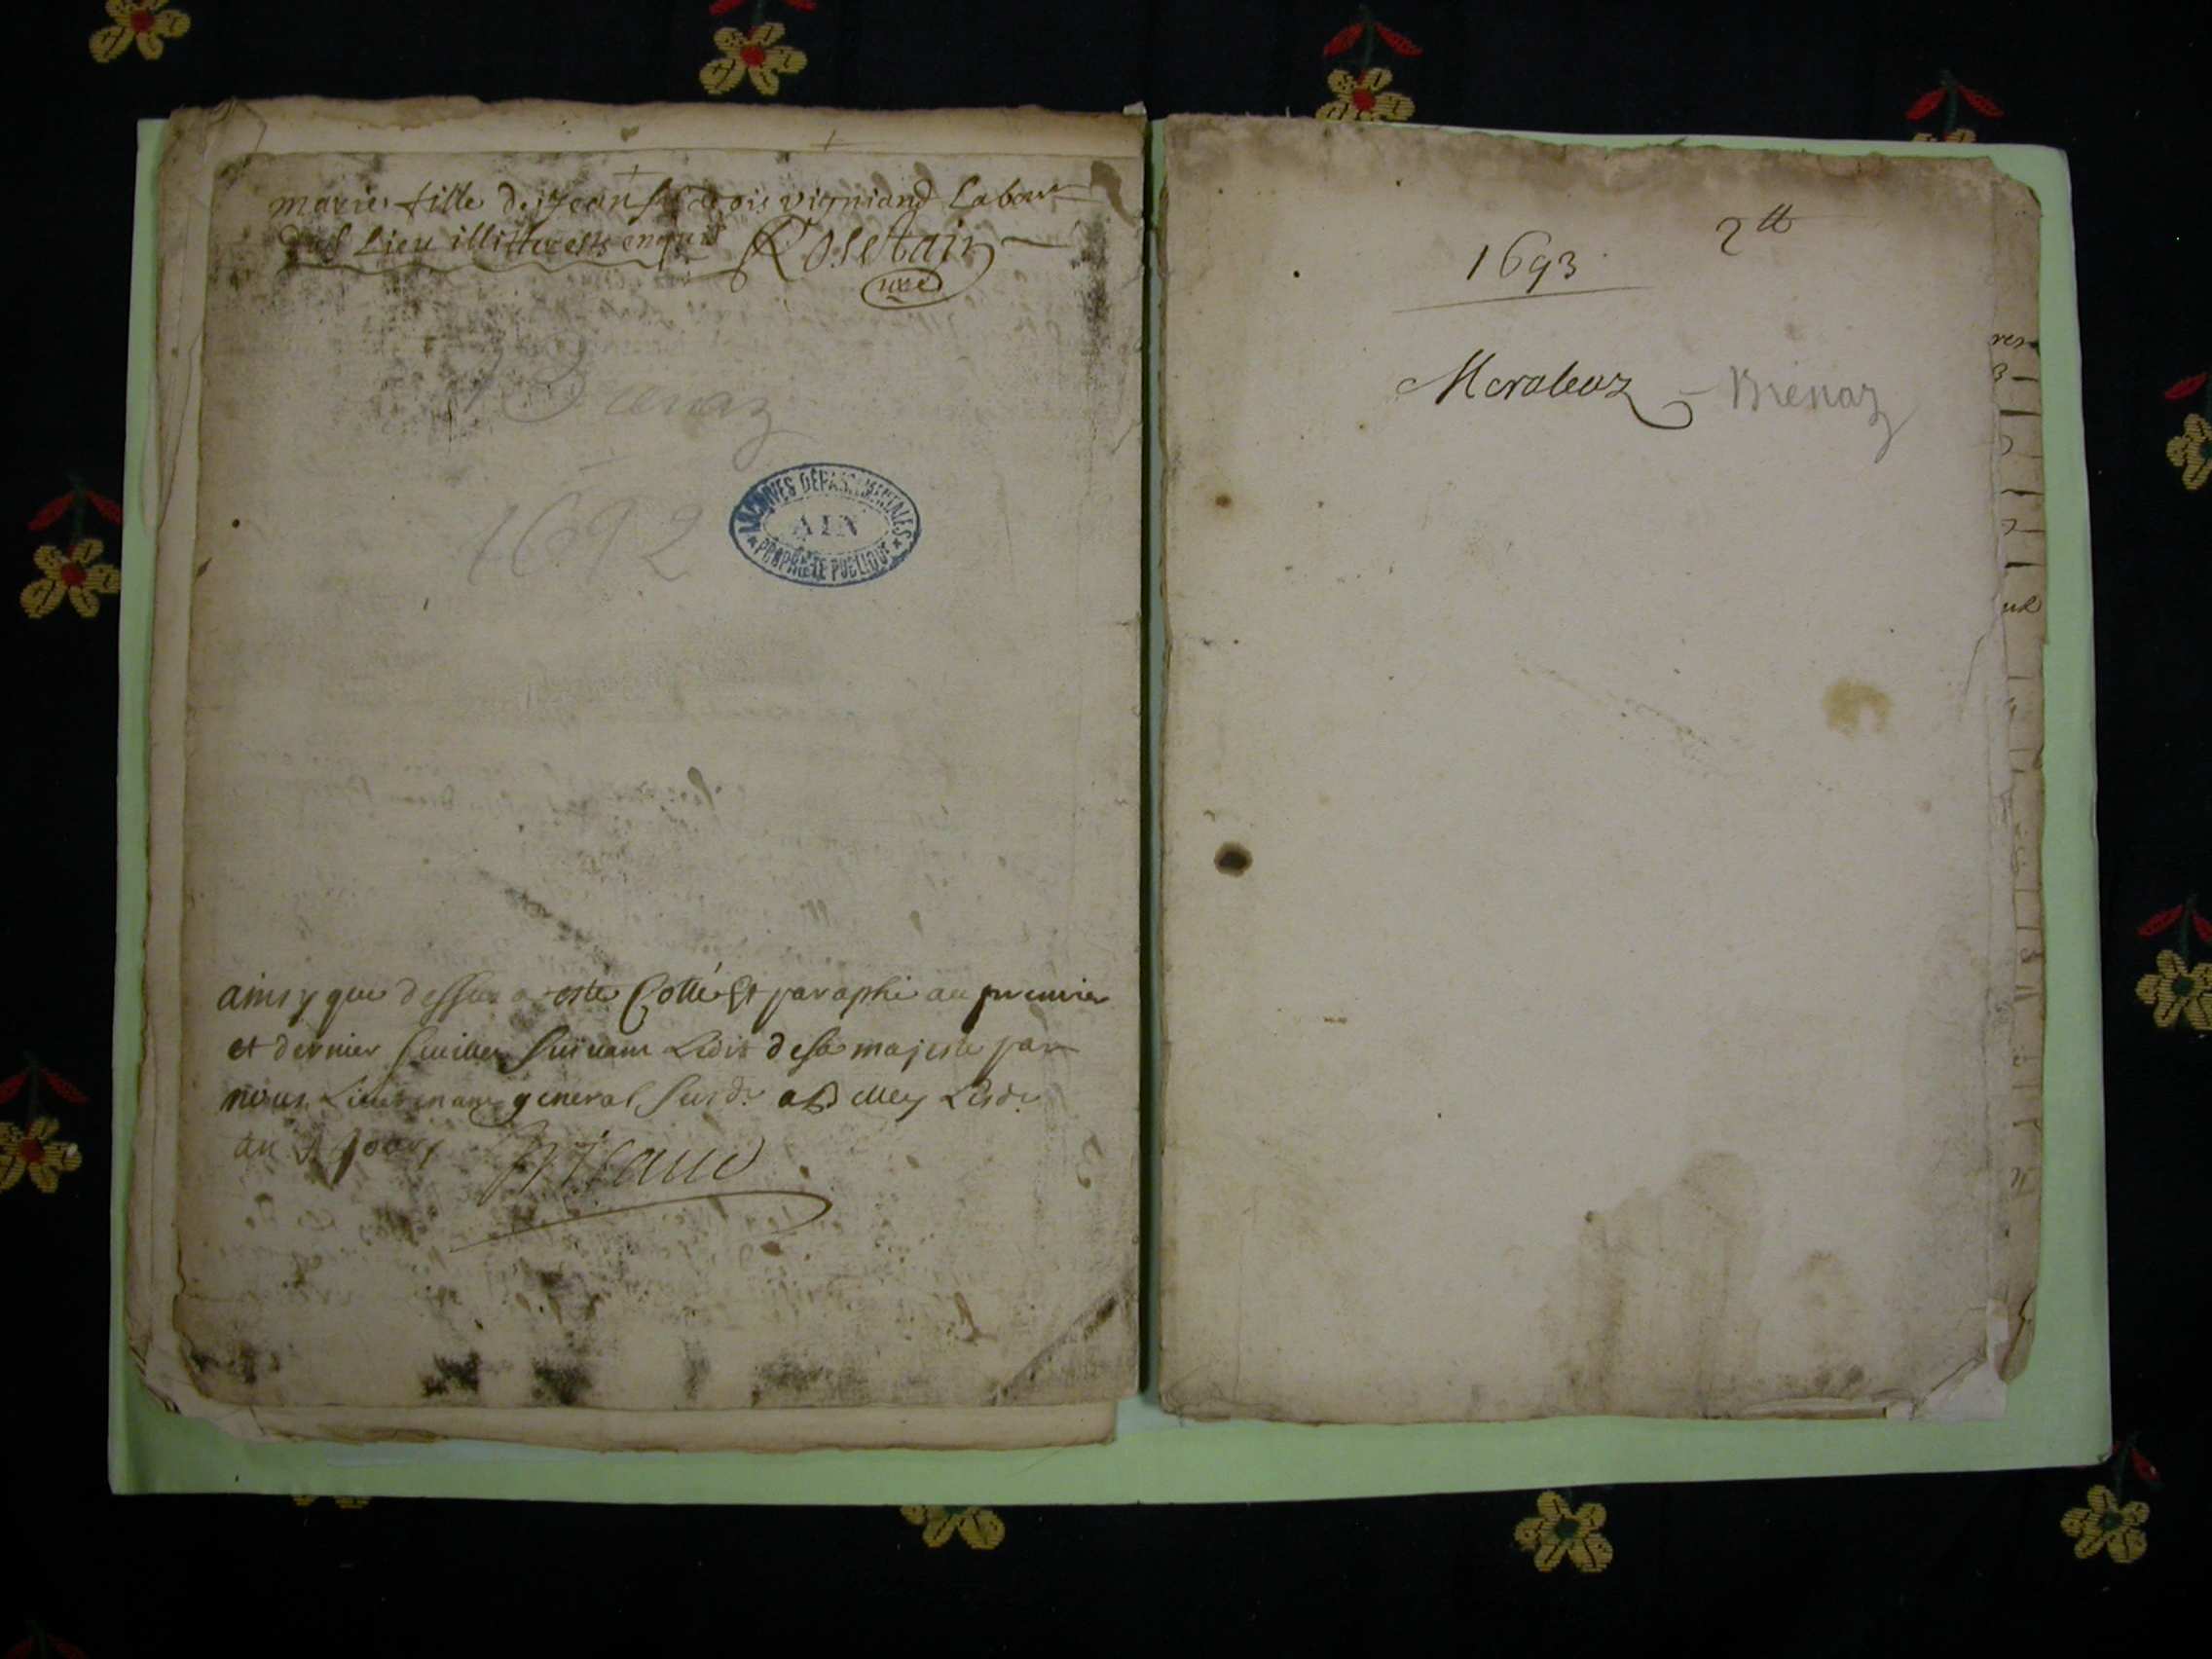 marie fille de jean francois vigniand Labour
dud Lieu illitere este enquis Rosetain
curé
Brenaz
1692
ARCHIVES DÉPARTEMENTALES
AIN
PROPRIÉTÉ PUBLIQUE
ainsy que dessus a esté Cotté Et paraphé au premier
et dernier feuillet suivant Ledit de sa majesté par
nous Lieutenant general susd. a Belley Lesd.
an & jour
2tt
1693
Meraleaz - Brenaz